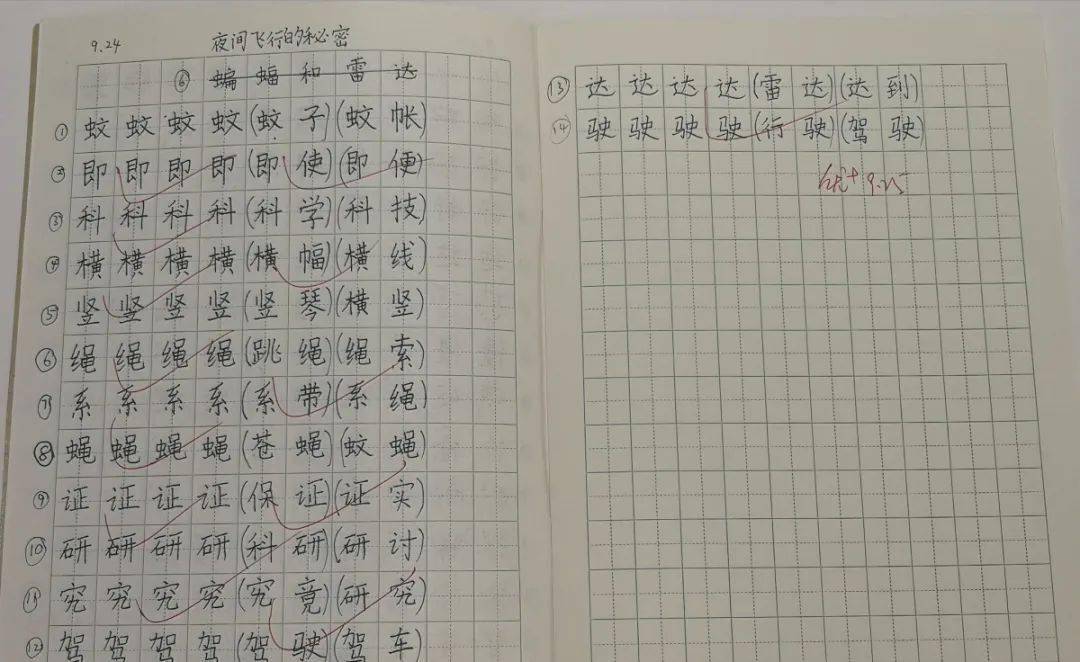 9.24 夜间飞行的秘密
⑥ 蝙蝠和雷达
① 蚊 蚊 蚊 蚊 (蚊子)(蚊帐)
② 即 即 即 即 (即使)(即便)
③ 科 科 科 科 (科学)(科技)
④ 横 横 横 横 (横幅)(横线)
⑤ 竖 竖 竖 竖 (竖琴)(横竖)
⑥ 绳 绳 绳 绳 (跳绳)(绳索)
⑦ 系 系 系 系 (系带)(系绳)
⑧ 蝇 蝇 蝇 蝇 (苍蝇)(蚊蝇)
⑨ 证 证 证 证 (保证)(证实)
⑩ 研 研 研 研 (科研)(研讨)
⑪ 究 究 究 究 (究竟)(研究)
⑫ 驾 驾 驾 驾 (驾驶)(驾车
⑬ 达 达 达 达 (雷达)(达到)
⑭ 驶 驶 驶 驶 (行驶)(驾驶)
优+ 9.25